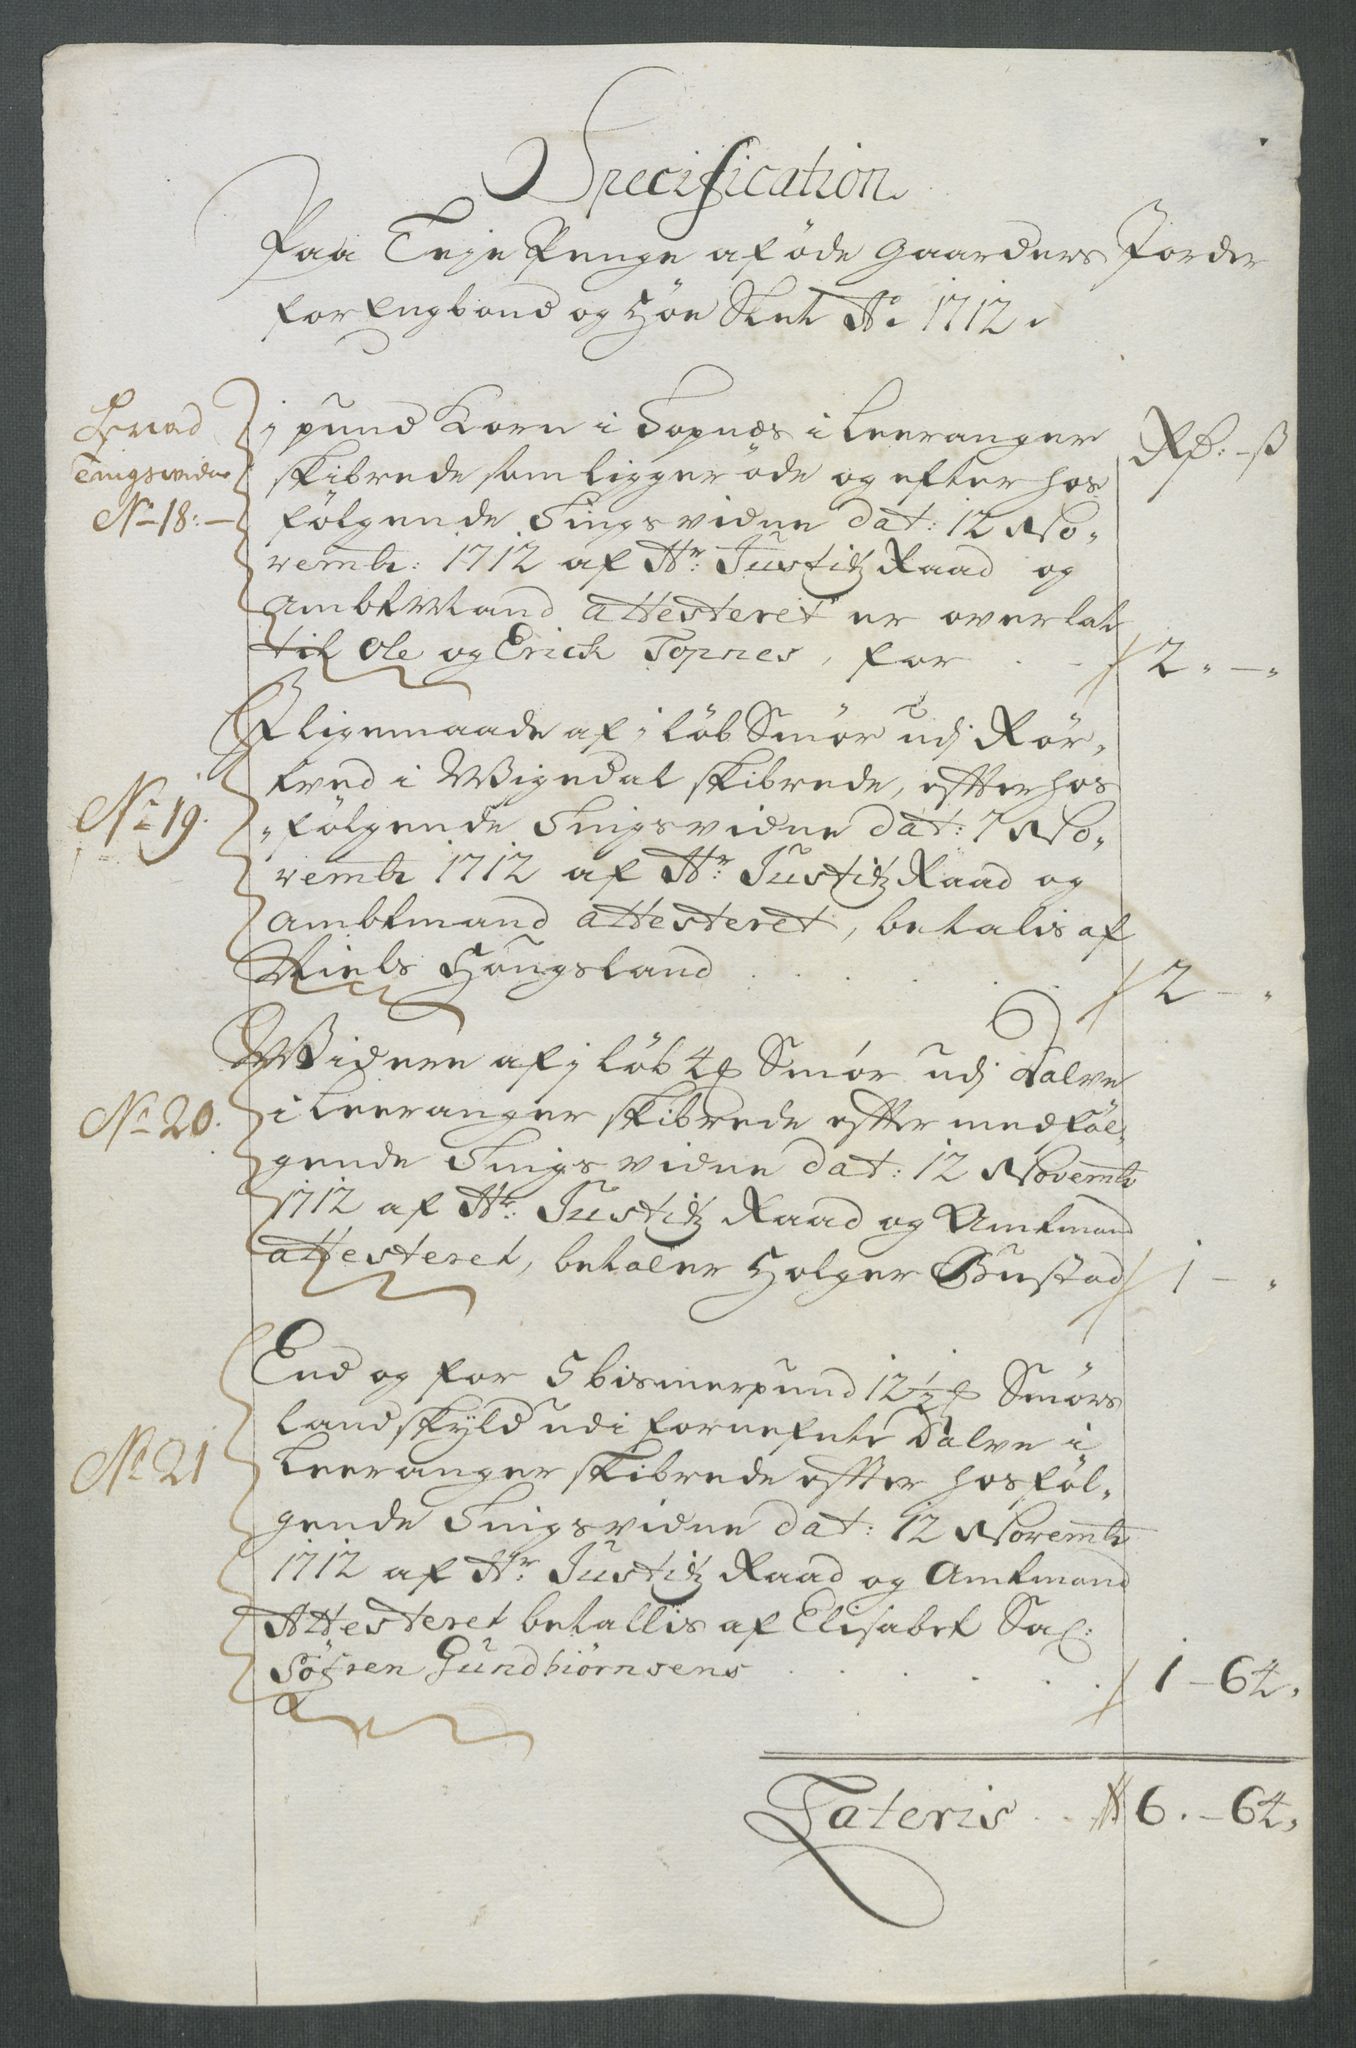 Specification
Paa Leje Penge af öde Gaarders Jorder
for Engbond og Höe Slet Ao 1712.
Rdr: - ß
Tingsvidne
No 18: -
1 pund Korn i Topnes i Leeranger
skibrede som ligger öde og efter hos
fölgende Tingsvidne dat: 12 No-
vembr: 1712 af Hr. Justitz Raad og
Ambtmand attesteret er overlat
til Ole og Erick Topnes, for . . 2 . - .
No 19.
J ligemaade af 1 löb Smör udj Rör-
tved i Wigedal skibrede, effter hos
fölgende Tingsvidne dat: 7 No-
vembr 1712 af Hr. Justitz Raad og
Ambtmand attesteret, betalis af
Niels Höugsland . . . . 2 - .
No 20.
Widere af 1 löb 4 Smör udj Dalve
i Leeranger skibrede effter medföl-
gende Tingsvidne dat: 12 Novembr
1712 af Hr. Justitz Raad og Amtmand
attesteret, betaler Holger Bustad 1 - .
No 21
End og for 5 bismerpund 12 1/2 Smörs
landskyld udi fornefnte Dalve i
Leeranger skibrede effter hosföl-
gende Tingsvidne dat: 12 Novembr
1712 af Hr Justitz Raad og Amtmand
Attesteret betallis af Elisabet Sal:
Söfren Gundbiörnsens . . . . 1 - 64.
Lateris . . 6. - 64.